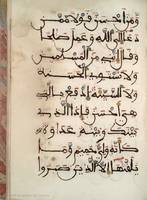 ومن أحسن قولا ممن
دعا إلى الله وعمل صالحا
وقال إنني من المسلمين
ولا تستوي الحسنة
ولا السيئة ادفع بالتي
هي أحسن فإذا الذي
بينك وبينه عداوة
كأنه ولي حميم وما
يلقاها إلا الذين صبروا